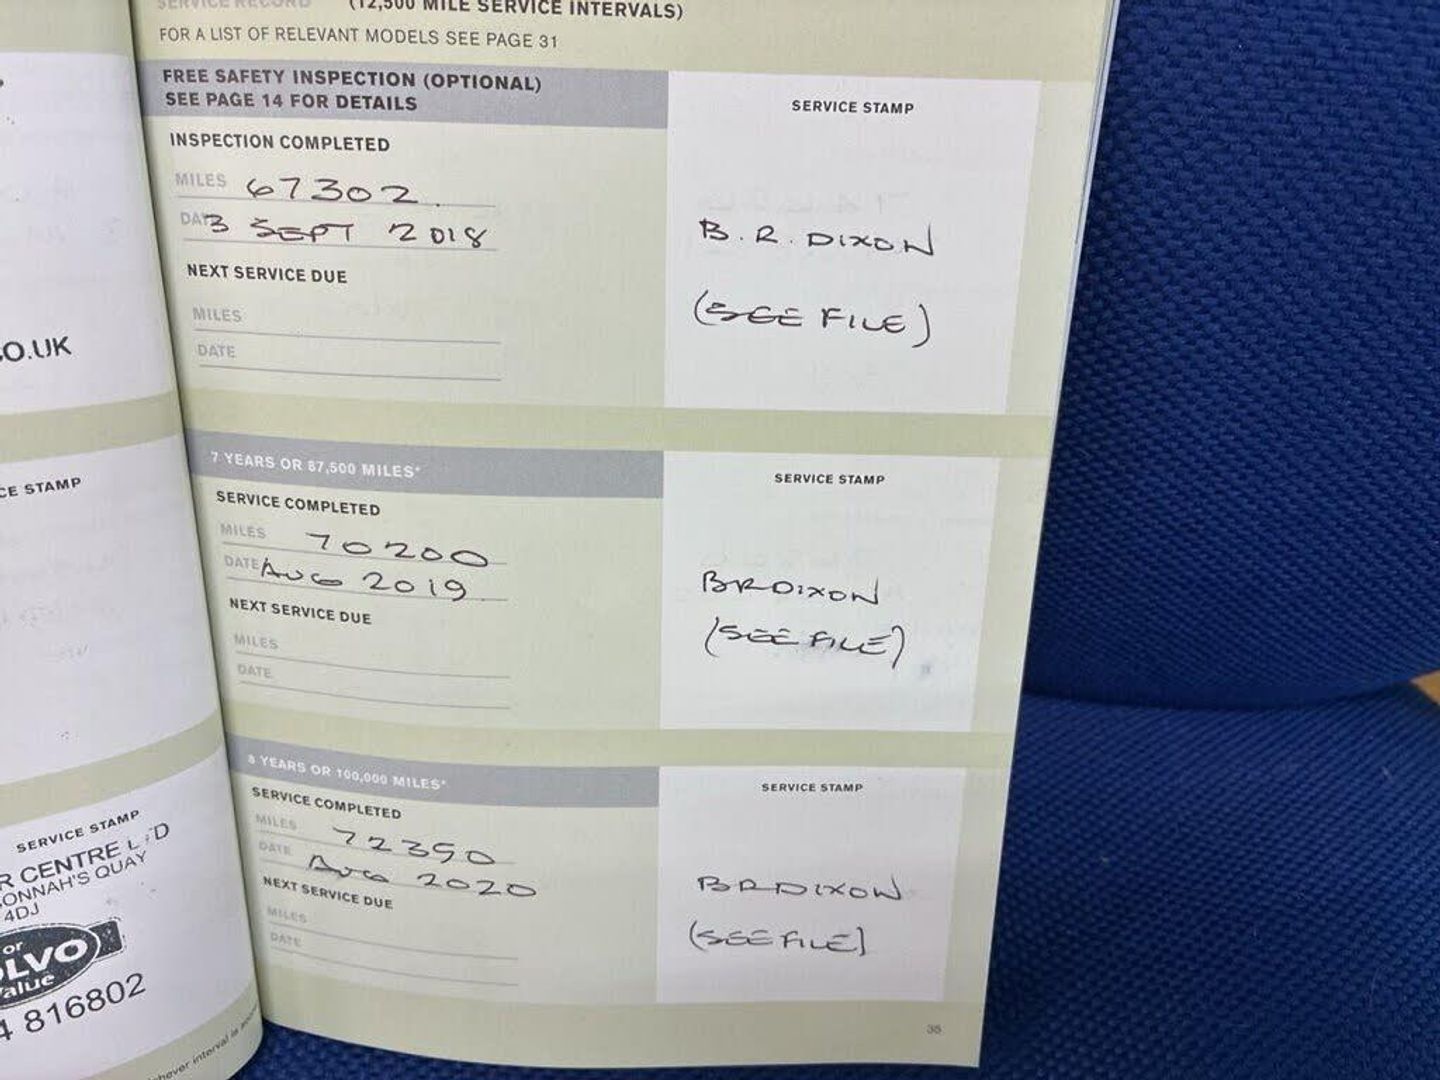 SERVICE RECORD (12,500 MILE SERVICE INTERVALS)
FOR A LIST OF RELEVANT MODELS SEE PAGE 31
FREE SAFETY INSPECTION (OPTIONAL)
SEE PAGE 14 FOR DETAILS
SERVICE STAMP
INSPECTION COMPLETED
MILES 67302.
DATE 3 SEPT 2018
B.R. DIXON
NEXT SERVICE DUE
(SEE FILE)
MILES
DATE
7 YEARS OR 87,500 MILES*
SERVICE STAMP
SERVICE COMPLETED
MILES 70200
DATE AUG 2019
BRDIXON
NEXT SERVICE DUE
(SEE FILE)
MILES
DATE
8 YEARS OR 100,000 MILES*
SERVICE STAMP
SERVICE COMPLETED
MILES 72390
DATE AUG 2020
BRDIXON
NEXT SERVICE DUE
(SEE FILE)
MILES
DATE
35
O.UK
CE STAMP
SERVICE STAMP
R CENTRE LTD
ONNAH'S QUAY
4DJ
or
OLVO
alue
4 816802
hever interval is